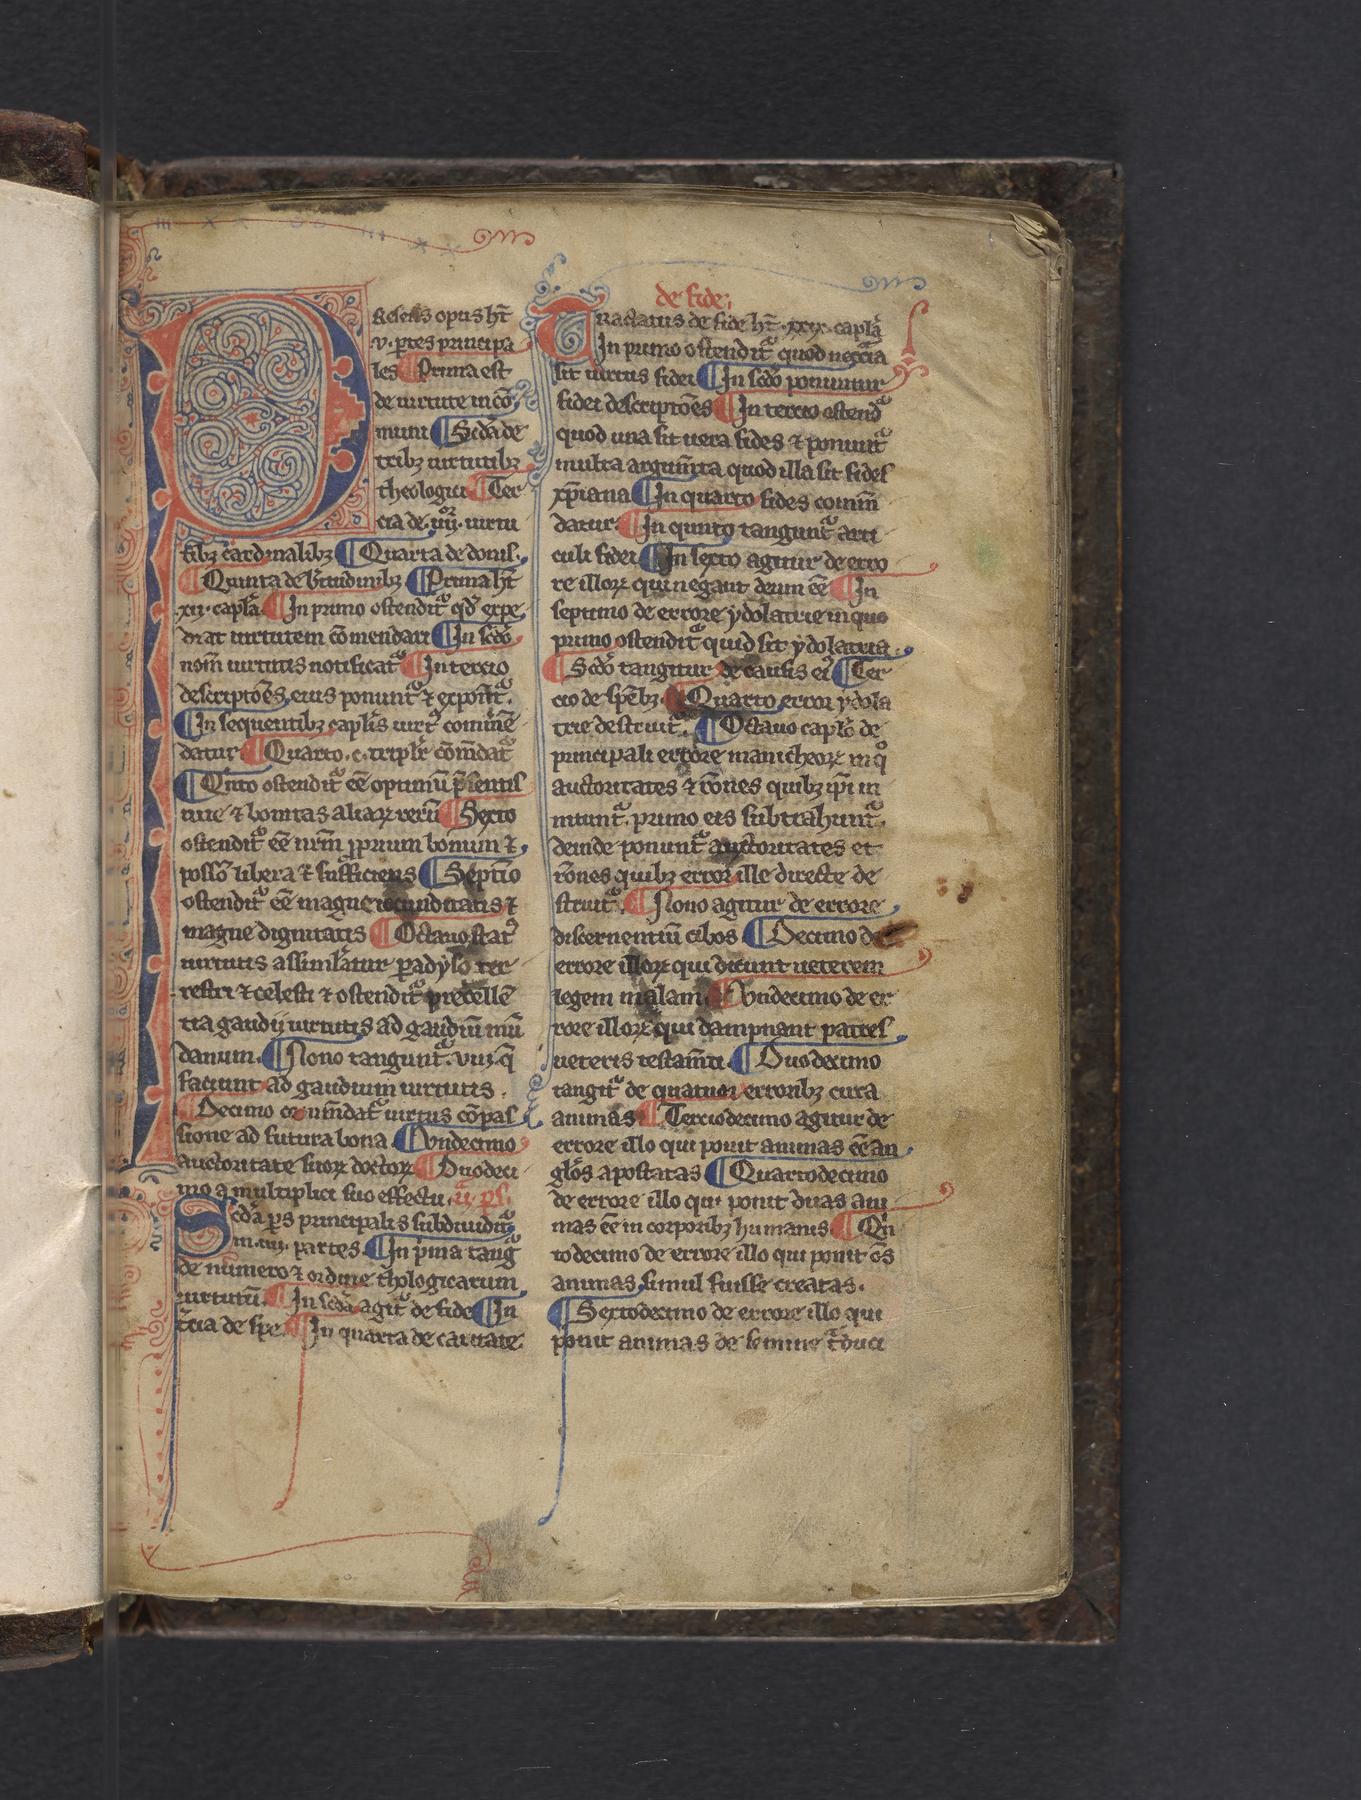 PResens opus hꝫt
v. ꝑtes principa
les ¶ Prima est
de uirtute in cō
muni ¶ Scďa de
tribꝫ uirtutibꝫ
theologicis ¶ Ter
cia de .iiijor. uirtu
tibꝫ cardinalibꝫ ¶ Quarta de donis.
¶ Quinta de b̄titudinibꝫ ¶ Prima hꝫt
xij. capľa. ¶ In primo ostenditᷣ qď expe
diat uirtutem cōmendari ¶ In scďo
nom̄ uirtutis notificatᷣ ¶ In tercio
descriptōes eius ponuntᷣ ⁊ exponūtᷣ.
¶ In sequentibꝫ caplis uirtꝰ commē
datur ¶ Quarto .c. tripľr cōmdatᷣ
¶ Qinto ostenditᷣ eē optimū p̄sentis
uite ⁊ bonitas aliaꝝ rerū ¶ Sexto
ostenditᷣ eē nr̄m ꝓprium bonum ⁊
possō libera ⁊ sufficiens ¶ Septīo
ostenditᷣ eē magne iocunditatis ⁊
magne dignitatis ¶ Octauo statꝰ
uirtutis assimilatur ꝑadyso ter
restri ⁊ celesti ⁊ ostenditᷣ precellē
tia gaudij uirtutis ad gaudiū mū
danum. ¶ Nono tanguntᷣ. viij. q̄
faciunt ad gaudium uirtutis.
¶ Decimo commdatᷣ uirtus cōpas
sione ad futura bona ¶ Undecimo
auctoritate suoꝝ doctoꝝ ¶ Duodeci
mo a multiplici suo effectu. ij. ps.
Scďa ꝑs principalis subdiuiditᷣ
in .iiij. partes. ¶ In p̄ma tangitᷣ
de numero ⁊ ordine theologicarum
uirtutū. ¶ In scďa agitᷣ de fide ¶ In
t̄cia de spe. ¶ In quarta de caritate
de fide;
TRactatus de fide hꝫt .xxix. capľa
In primo ostenditᷣ quod necc̄ia
sit uirtus fidei ¶ In scďo ponuntur
fidei descriptōes ¶ In tercio ostendᷣ
quod una sit uera fides ⁊ ponuntᷣ
multa argum̄ta quod illa sit fides
xp̄iana ¶ In quarto fides comm̄
datur ¶ In quinto tanguntᷣ arti
culi fidei ¶ In sexto agitur de erro
re illoꝝ qui negant deum eē ¶ In
septimo de errore ydolatrie in quo
primo ostenditᷣ quid sit ydolatria.
¶ Scďo tangitur de causis eiꝰ ¶ Ter
cio de sp̄ebꝫ. ¶ Quarto error ydola
trie destruitᷣ. ¶ Octauo capľo de
principali errore manicheoꝝ in qͦ
auctoritates ⁊ rōnes quibꝫ ip̄i in
nituntᷣ. primo eis subtrahuntᷣ.
deinde ponuntᷣ auctoritates et
rōnes quibꝫ error ille directe de
struitᷣ. ¶ Nono agitur de errore
discernentiū cibos ¶ Decimo de
errore illoꝝ qui dicunt ueterem
legem malam ¶ Undecimo de er
rore illoꝝ qui dampnant patres
ueteris testam̄ti. ¶ Duodecimo
tangitᷣ de quatuor erroribꝫ circa
animas ¶ Terciodecimo agitur de
errore illo qui ponit animas eē an
gľos apostatas ¶ Quartodecimo
de errore illo qui ponit duas ani
mas eē in corporibꝫ humanis ¶ Qin
todecimo de errore illo qui ponit ōs
animas simul fuisse creatas.
¶ Sextodecimo de errore illo qui
ponit animas de semine t̄duci